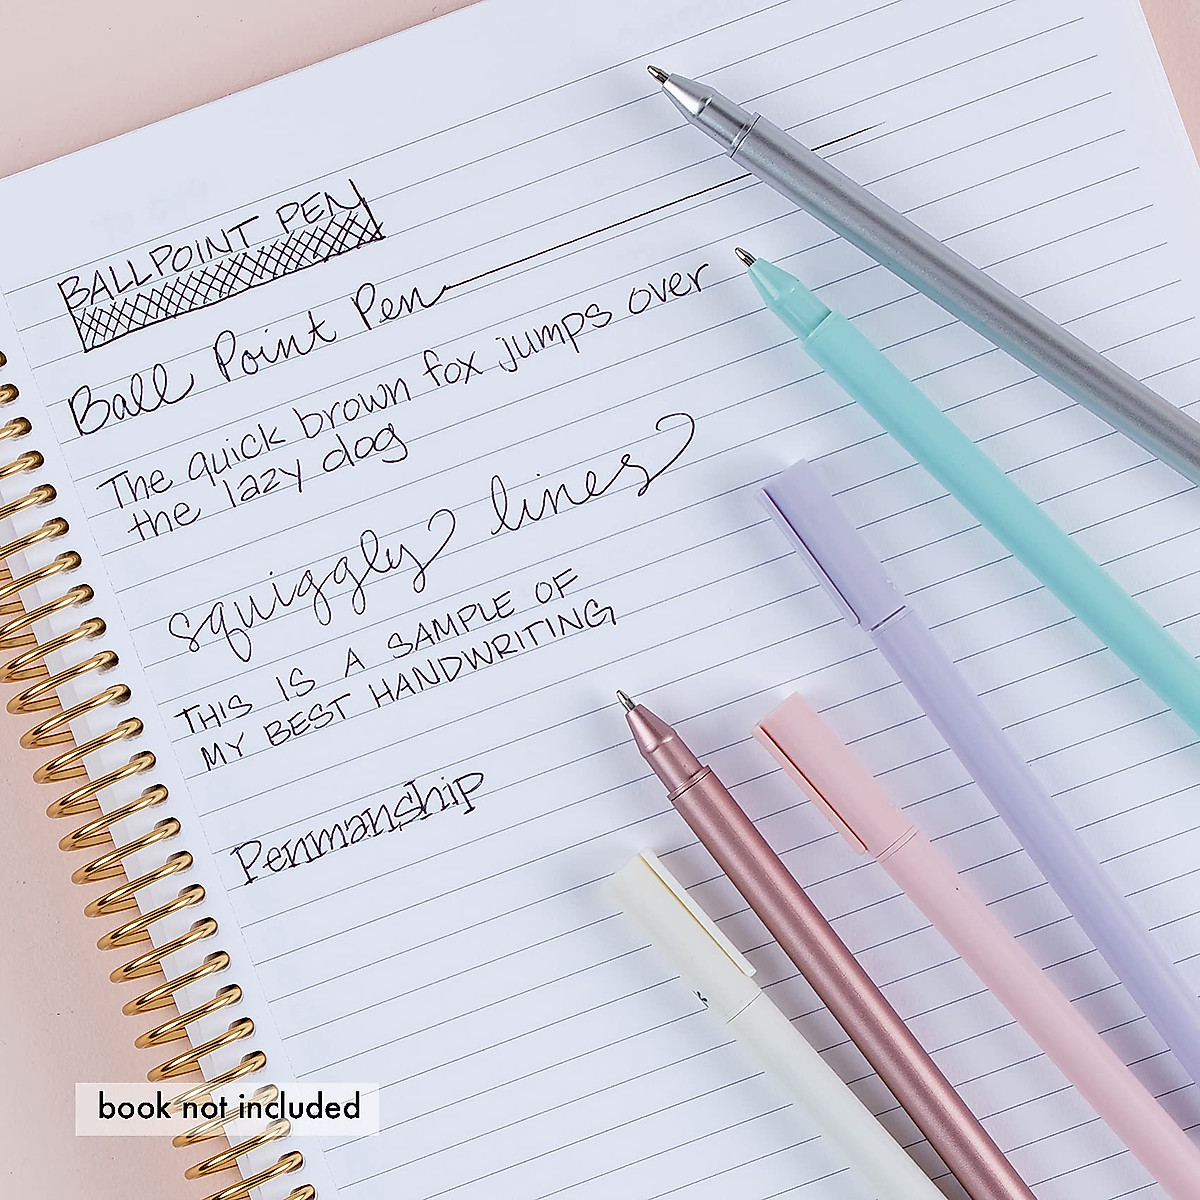 BALLPOINT PEN
Ball Point Pen
The quick brown fox jumps over
the lazy dog
squiggly lines
THIS IS A SAMPLE OF
MY BEST HANDWRITING
Penmanship
book not included